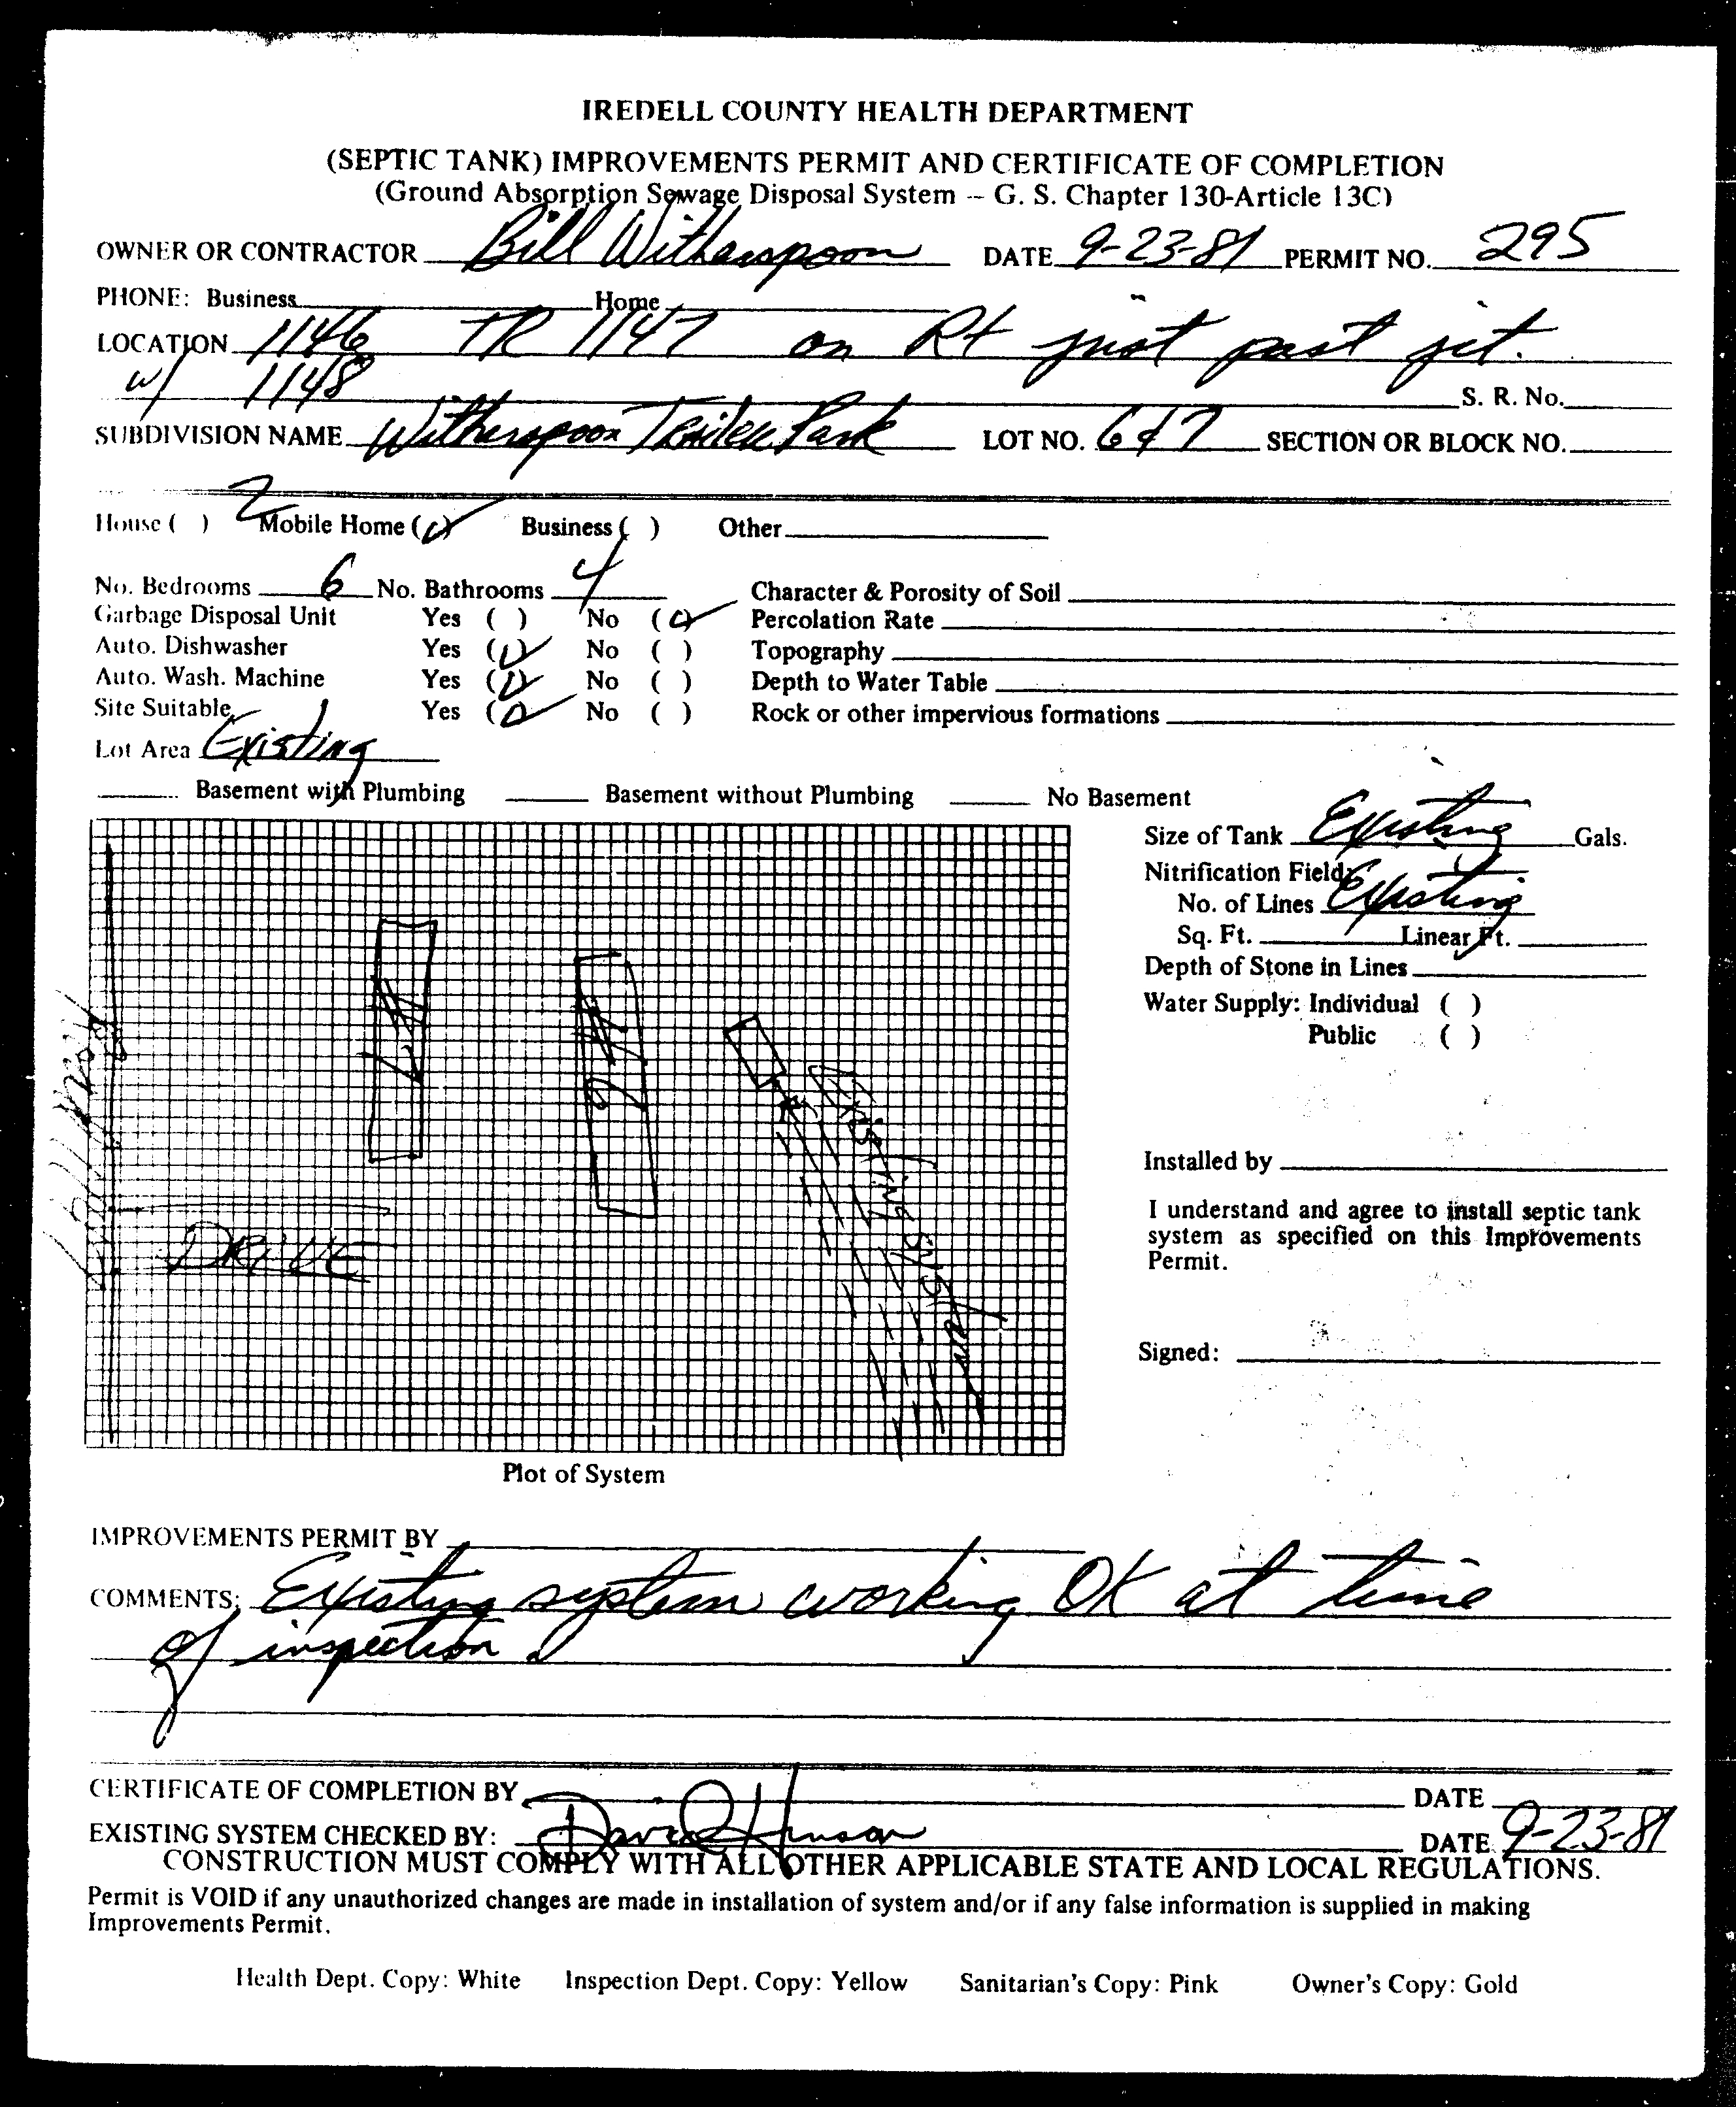 IREDELL COUNTY HEALTH DEPARTMENT
(SEPTIC TANK) IMPROVEMENTS PERMIT AND CERTIFICATE OF COMPLETION
(Ground Absorption Sewage Disposal System -- G. S. Chapter 130-Article 13C)
OWNER OR CONTRACTOR Bill Witherspoon DATE 9-23-81 PERMIT NO. 295
PHONE: Business Home
LOCATION 1146 TR 1147 on Rt just past jct.
w/ 1148 S. R. No.
SUBDIVISION NAME Witherspoon Trailer Park LOT NO. 6 & 7 SECTION OR BLOCK NO.
House ( ) 2 Mobile Home (✓) Business ( ) Other
No. Bedrooms 6 No. Bathrooms 4 Character & Porosity of Soil
Garbage Disposal Unit Yes ( ) No (✓) Percolation Rate
Auto. Dishwasher Yes (✓) No ( ) Topography
Auto. Wash. Machine Yes (✓) No ( ) Depth to Water Table
Site Suitable Yes (✓) No ( ) Rock or other impervious formations
Lot Area Existing
Basement with Plumbing Basement without Plumbing No Basement
Size of Tank Existing Gals.
Nitrification Field:
No. of Lines Existing
Sq. Ft. Linear Ft.
Depth of Stone in Lines
Water Supply: Individual ( )
Public ( )
#7
#6
Existing System
DRIVE
Installed by
I understand and agree to install septic tank
system as specified on this Improvements
Permit.
Signed:
Plot of System
IMPROVEMENTS PERMIT BY
COMMENTS: Existing system working OK at time
of inspection.
CERTIFICATE OF COMPLETION BY DATE
EXISTING SYSTEM CHECKED BY: David Hinson DATE 9-23-81
CONSTRUCTION MUST COMPLY WITH ALL OTHER APPLICABLE STATE AND LOCAL REGULATIONS.
Permit is VOID if any unauthorized changes are made in installation of system and/or if any false information is supplied in making
Improvements Permit.
Health Dept. Copy: White Inspection Dept. Copy: Yellow Sanitarian's Copy: Pink Owner's Copy: Gold